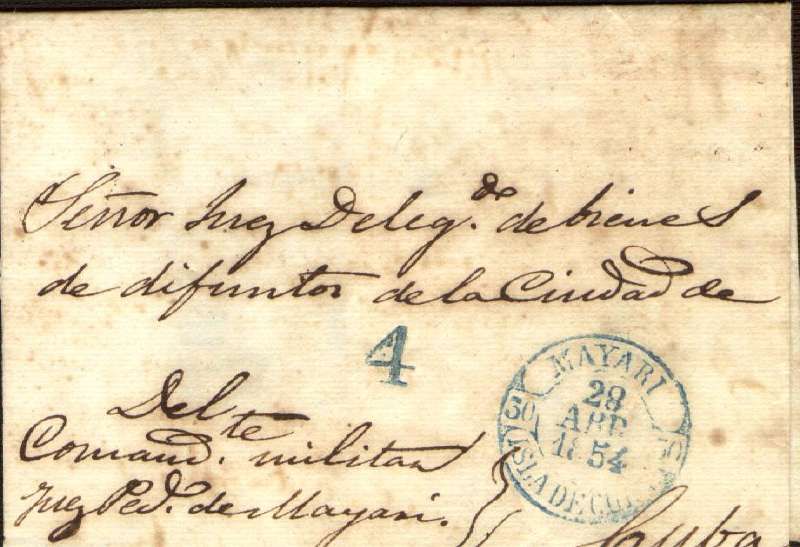 Señor Juez Deleg.do de bienes
de difuntos de la Ciudad de
4
MAYARI
28
ABR
1854
30
ISLA DE CUBA
Del
Comand.te militar
Juez Ped.º de Mayari.
Cuba